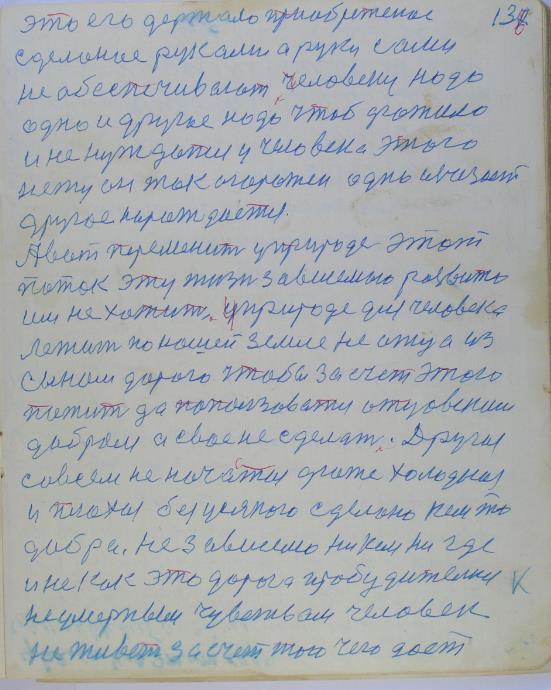 136
это его держало приобретеное
сделоное руками а руки сами
не обеспечивают человеку надо
одно и другое надо чтоб ожило
и не нуждатся у человека этого
нету он так огорожен одно исчезает
другое нарождается.
А вот переменит у природе этот
поток эту жизн зависемью розвито
им не хотит. у природе для человека
лежит по нашей земле не отца из
сыном дорога чтобы за счет этого
пожит да попользоватя отцовским
добром а свое не сделат. Другая
совсем не начатая даже холодная
и плохая без усякого сделоно кем то
добра. не зависемо ни кем ни где
и не как это дорога пробудителная
неумерным чувствам человек
не живет за счет того чего дает